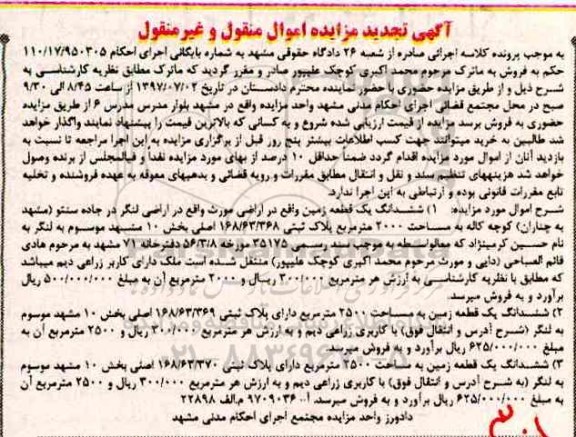 آگهی تجدید مزایده اموال منقول و غیرمنقول
به موجب پرونده کلاسه اجرائی صادره از شعبه ۲۶ دادگاه حقوقی مشهد به شماره بایگانی اجرای احکام ۱۱۰/۱۷/۹۵۰۳۰۵
حکم به فروش به ماترک مرحوم محمد اکبری کوچک علیپور صادر و مقرر گردید که ماترک مطابق نظریه کارشناسی به
شرح ذیل و از طریق مزایده حضوری با حضور نماینده محترم دادستان در تاریخ ۱۳۹۷/۰۷/۰۲ از ساعت ۸/۴۵ الی ۹/۳۰
صبح در محل مجتمع قضائی اجرای احکام مدنی مشهد واحد مزایده واقع در مشهد بلوار مدرس مدرس ۶ از طریق مزایده
حضوری به فروش برسد مزایده از قیمت ارزیابی شده شروع و به کسانی که بالاترین قیمت را پیشنهاد نمایند واگذار خواهد
شد طالبین به خرید میتوانند جهت کسب اطلاعات بیشتر پنج روز قبل از برگزاری مزایده به این اجرا مراجعه تا نسبت به
بازدید آنان از اموال مورد مزایده اقدام گردد ضمناً حداقل ۱۰ درصد از بهای مورد مزایده نقداً و فیالمجلس از برنده وصول
خواهد شد هزینههای تنظیم سند و نقل و انتقال مطابق مقررات و رویه قضائی و بدهیهای معوقه به عهده فروشنده و تخلیه
تابع مقررات قانونی بوده و ارتباطی به این اجرا ندارد.
شرح اموال مورد مزایده: ۱) ششدانگ یک قطعه زمین واقع در اراضی مورث واقع در اراضی لنگر در جاده سنتو (مشهد
به چناران) کوچه کاله به مساحت ۲۰۰۰ مترمربع پلاک ثبتی ۱۶۸/۶۳/۳۶۸ اصلی بخش ۱۰ مشهد موسوم به لنگر به
نام حسین کرمینژاد که معالواسطه به موجب سند رسمی ۳۵۱۷۵ مورخه ۵۶/۳/۸ دفترخانه ۷۱ مشهد به مرحوم هادی
قائم الصباحی (دایی و مورث مرحوم محمد اکبری کوچک علیپور) منتقل شده است ملک دارای کاربر زراعی دیم میباشد
که مطابق با نظریه کارشناسی به ارزش هر مترمربع ۳۰۰/۰۰۰ ریال و ۲۰۰۰ مترمربع آن به مبلغ ۵۰۰/۰۰۰/۰۰۰ ریال
برآورد و به فروش میرسد.
۲) ششدانگ یک قطعه زمین به مساحت ۲۵۰۰ مترمربع دارای پلاک ثبتی ۱۶۸/۶۳/۳۶۹ اصلی بخش ۱۰ مشهد موسوم
به لنگر (شرح آدرس و انتقال فوق) با کاربری زراعی دیم و به ارزش هر مترمربع ۳۰۰/۰۰۰ ریال و ۲۵۰۰ مترمربع آن به
مبلغ ۶۲۵/۰۰۰/۰۰۰ ریال برآورد و به فروش میرسد.
۳) ششدانگ یک قطعه زمین به مساحت ۲۵۰۰ مترمربع دارای پلاک ثبتی ۱۶۸/۶۳/۳۷۰ اصلی بخش ۱۰ مشهد موسوم
به لنگر (به شرح آدرس و انتقال فوق) با کاربری زراعی دیم و به ارزش هر مترمربع ۳۰۰/۰۰۰ ریال و ۲۵۰۰ مترمربع آن
به مبلغ ۶۲۵/۰۰۰/۰۰۰ ریال برآورد و به فروش میرسد. آ-۹۷۰۹۰۳۶ م.الف ۲۲۸۹۸
دادورز واحد مزایده مجتمع اجرای احکام مدنی مشهد